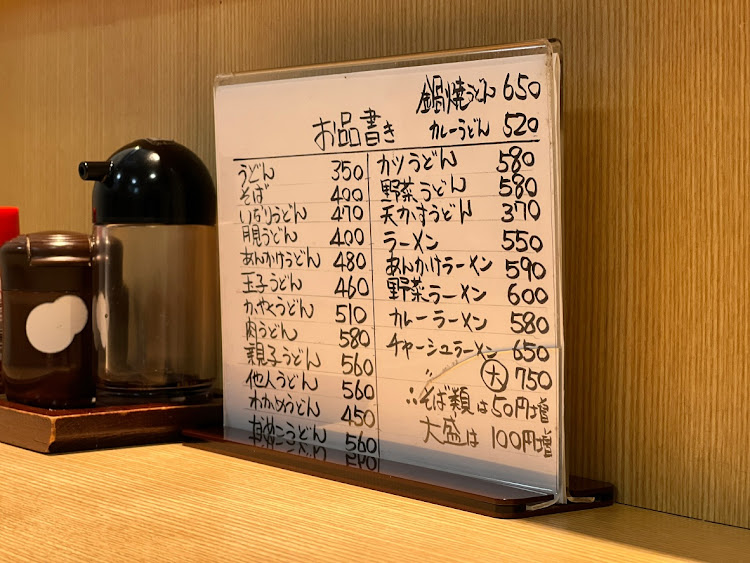 鍋焼うどん 650
カレーうどん 520
お品書き
うどん 350
そば 400
いちりうどん 470
月見うどん 400
あんかけうどん 480
玉子うどん 460
かやくうどん 510
肉うどん 580
親子うどん 560
他人うどん 560
わかめうどん 450
なめこうどん 560
カツうどん 580
野菜うどん 580
天かすうどん 370
ラーメン 550
あんかけラーメン 590
野菜ラーメン 600
カレーラーメン 580
チャーシュラーメン 650
〃 大 750
∴そば類は50円増
大盛は100円増